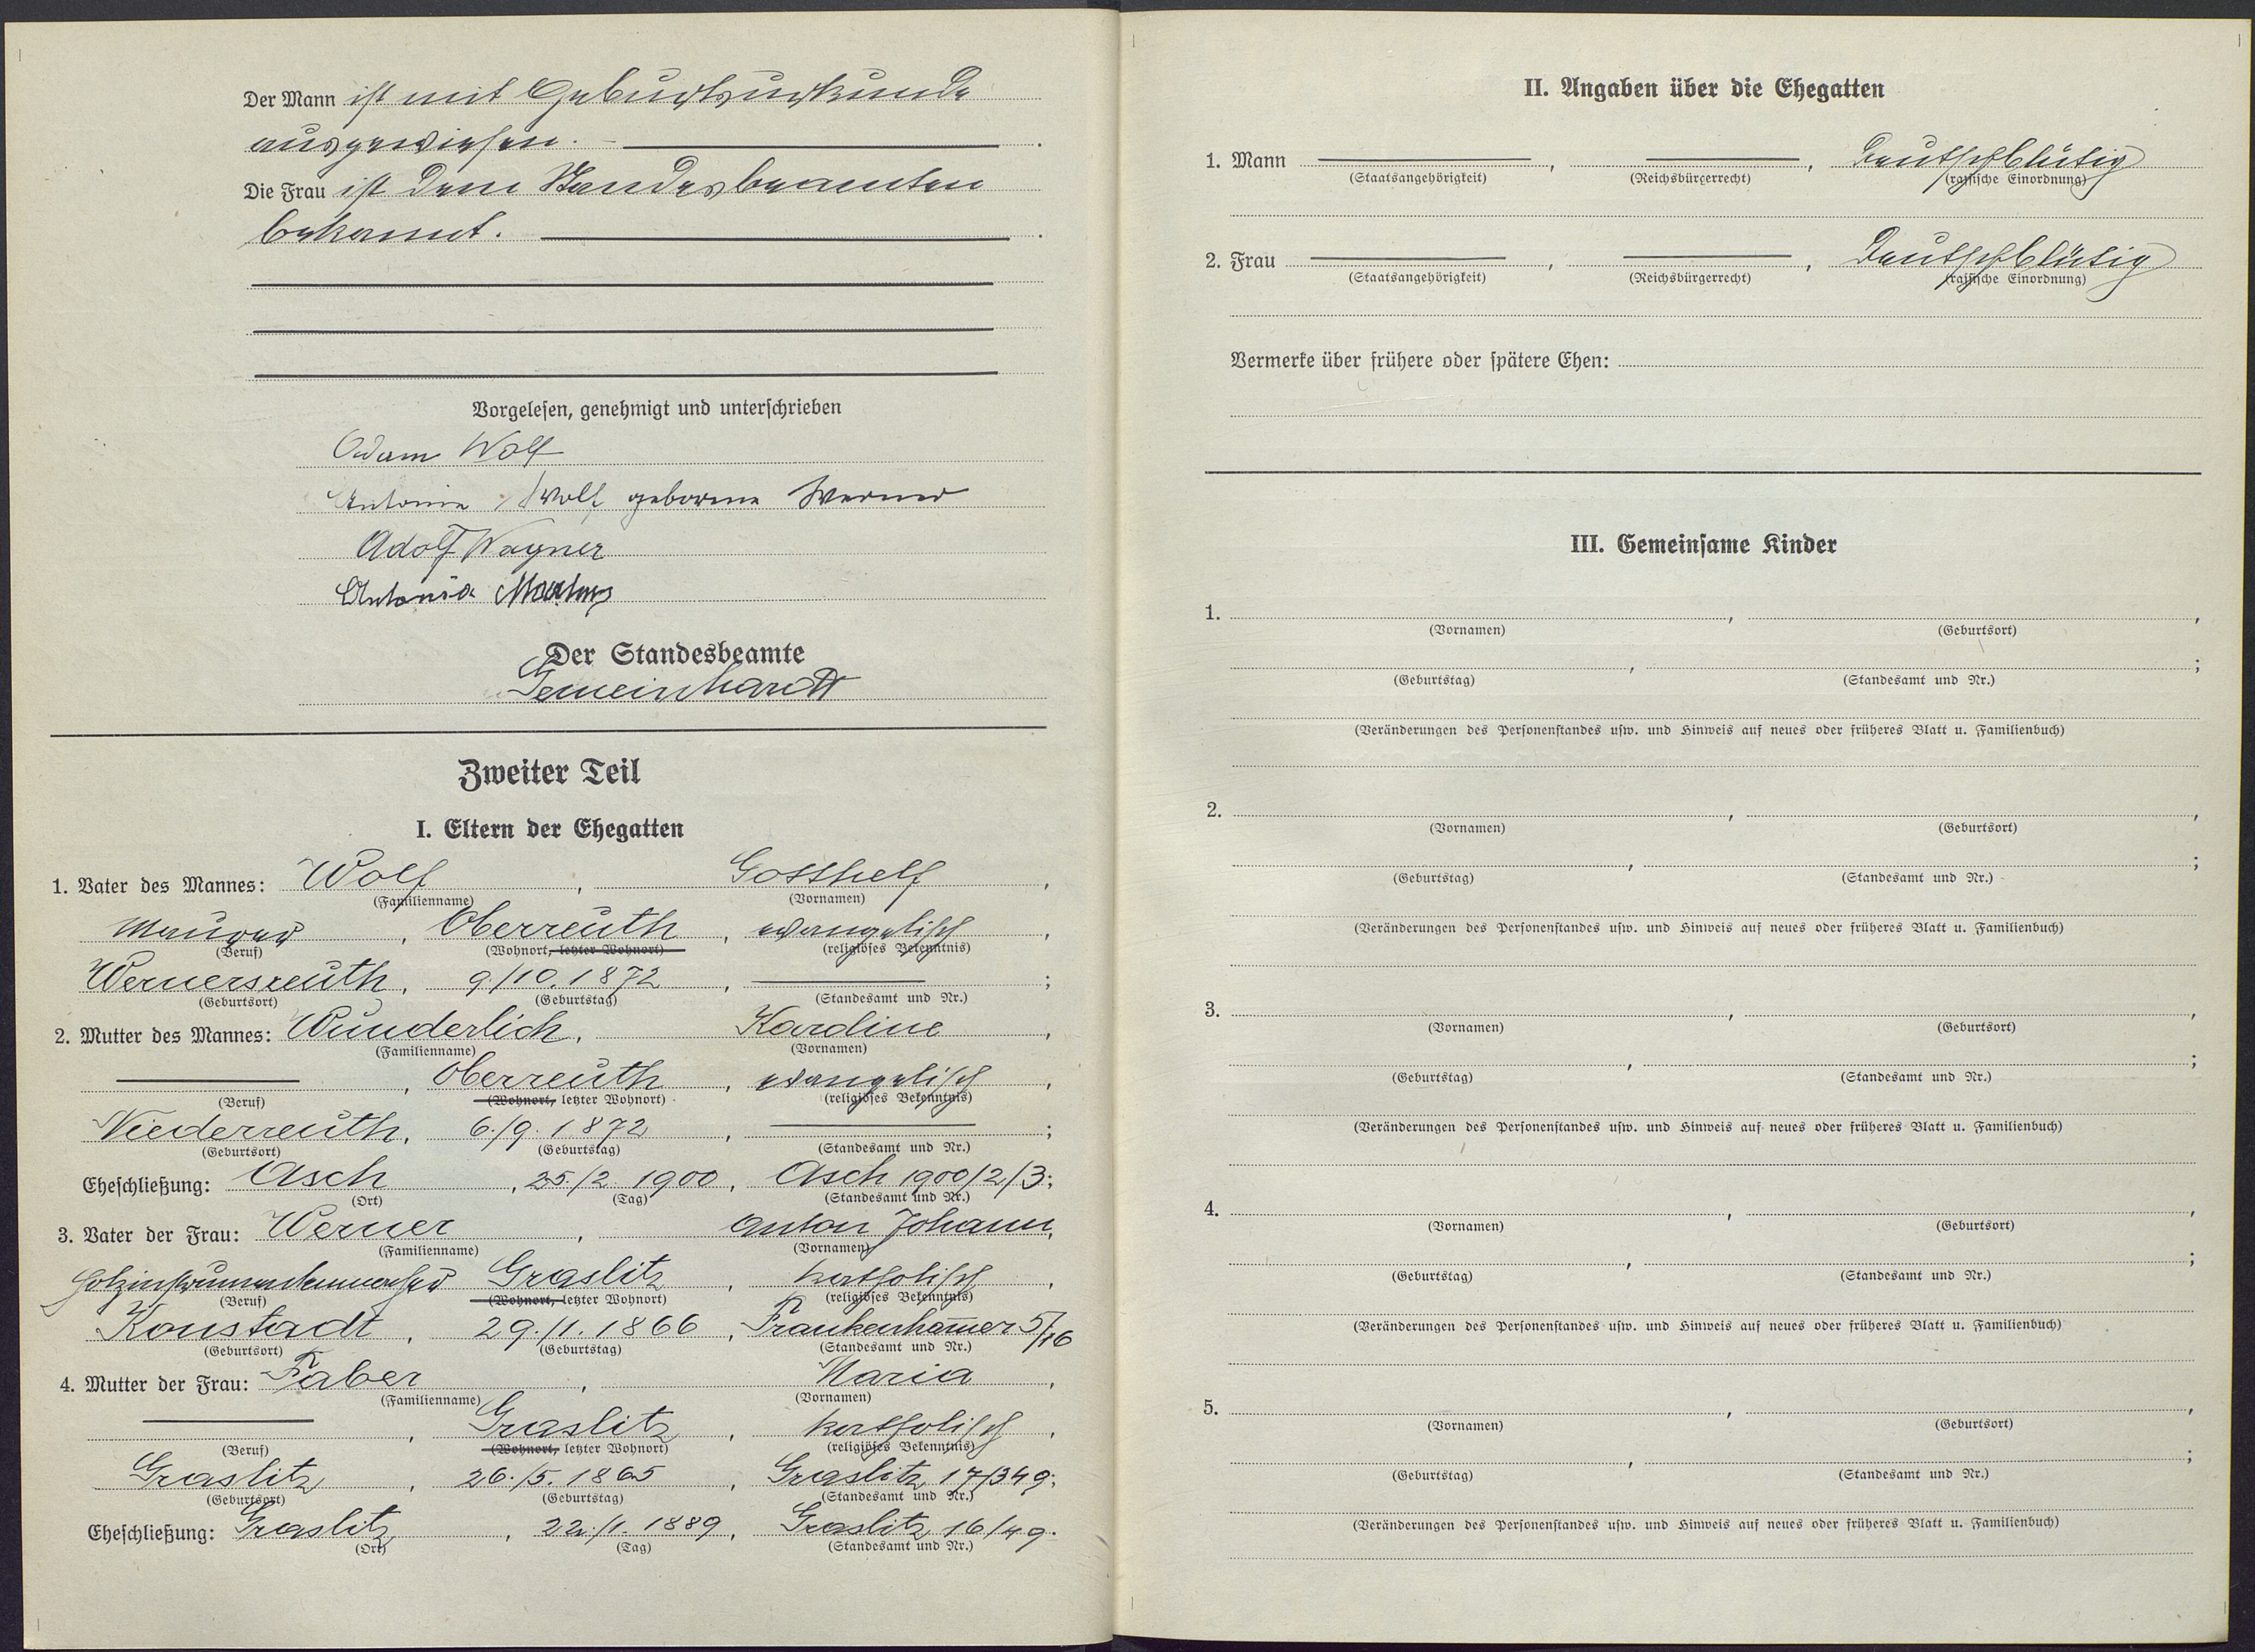 Der Mann ist mit Geburtsurkunde
ausgewiesen.
Die Frau ist dem Standesbeamten
bekannt.
Vorgelesen, genehmigt und unterschrieben
Adam Wolf
Antonie Wolf geborene Werner
Adolf Wagner
Antonia
Der Standesbeamte
Gemeinhardt
Zweiter Teil
I. Eltern der Ehegatten
1. Vater des Mannes: Wolf, Gotthelf,
(Familienname) (Vornamen)
Maurer, Oberreuth, evangelisch,
(Beruf) (Wohnort, letzter Wohnort) (religiöses Bekenntnis)
Wernersreuth, 9./10. 1872, ;
(Geburtsort) (Geburtstag) (Standesamt und Nr.)
2. Mutter des Mannes: Wunderlich, Karoline,
(Familienname) (Vornamen)
, Oberreuth, evangelisch,
(Beruf) (Wohnort, letzter Wohnort) (religiöses Bekenntnis)
Niederreuth, 6./9. 1872, ;
(Geburtsort) (Geburtstag) (Standesamt und Nr.)
Eheschließung: Asch, 25./2. 1900, Asch 1900/2/3;
(Ort) (Tag) (Standesamt und Nr.)
3. Vater der Frau: Werner, Anton Johann,
(Familienname) (Vornamen)
Holzinstrumentenmacher Graslitz, katholisch,
(Beruf) (Wohnort, letzter Wohnort) (religiöses Bekenntnis)
Konstadt, 29./1. 1866, Frankenhammer 5/16
(Geburtsort) (Geburtstag) (Standesamt und Nr.)
4. Mutter der Frau: Faber, Maria,
(Familienname) (Vornamen)
, Graslitz, katholisch,
(Beruf) (Wohnort, letzter Wohnort) (religiöses Bekenntnis)
Graslitz, 26./5. 1865, Graslitz 17/349;
(Geburtsort) (Geburtstag) (Standesamt und Nr.)
Eheschließung: Graslitz, 22./1. 1889, Graslitz 16/49.
(Ort) (Tag) (Standesamt und Nr.)
II. Angaben über die Ehegatten
1. Mann , , deutschblütig
(Staatsangehörigkeit) (Reichsbürgerrecht) (rassische Einordnung)
2. Frau , , deutschblütig
(Staatsangehörigkeit) (Reichsbürgerrecht) (rassische Einordnung)
Vermerke über frühere oder spätere Ehen:
III. Gemeinsame Kinder
1. , ,
(Vornamen) (Geburtsort)
, ;
(Geburtstag) (Standesamt und Nr.)
(Veränderungen des Personenstandes usw. und Hinweis auf neues oder früheres Blatt u. Familienbuch)
2. , ,
(Vornamen) (Geburtsort)
, ;
(Geburtstag) (Standesamt und Nr.)
(Veränderungen des Personenstandes usw. und Hinweis auf neues oder früheres Blatt u. Familienbuch)
3. , ,
(Vornamen) (Geburtsort)
, ;
(Geburtstag) (Standesamt und Nr.)
(Veränderungen des Personenstandes usw. und Hinweis auf neues oder früheres Blatt u. Familienbuch)
4. , ,
(Vornamen) (Geburtsort)
, ;
(Geburtstag) (Standesamt und Nr.)
(Veränderungen des Personenstandes usw. und Hinweis auf neues oder früheres Blatt u. Familienbuch)
5. , ,
(Vornamen) (Geburtsort)
, ;
(Geburtstag) (Standesamt und Nr.)
(Veränderungen des Personenstandes usw. und Hinweis auf neues oder früheres Blatt u. Familienbuch)